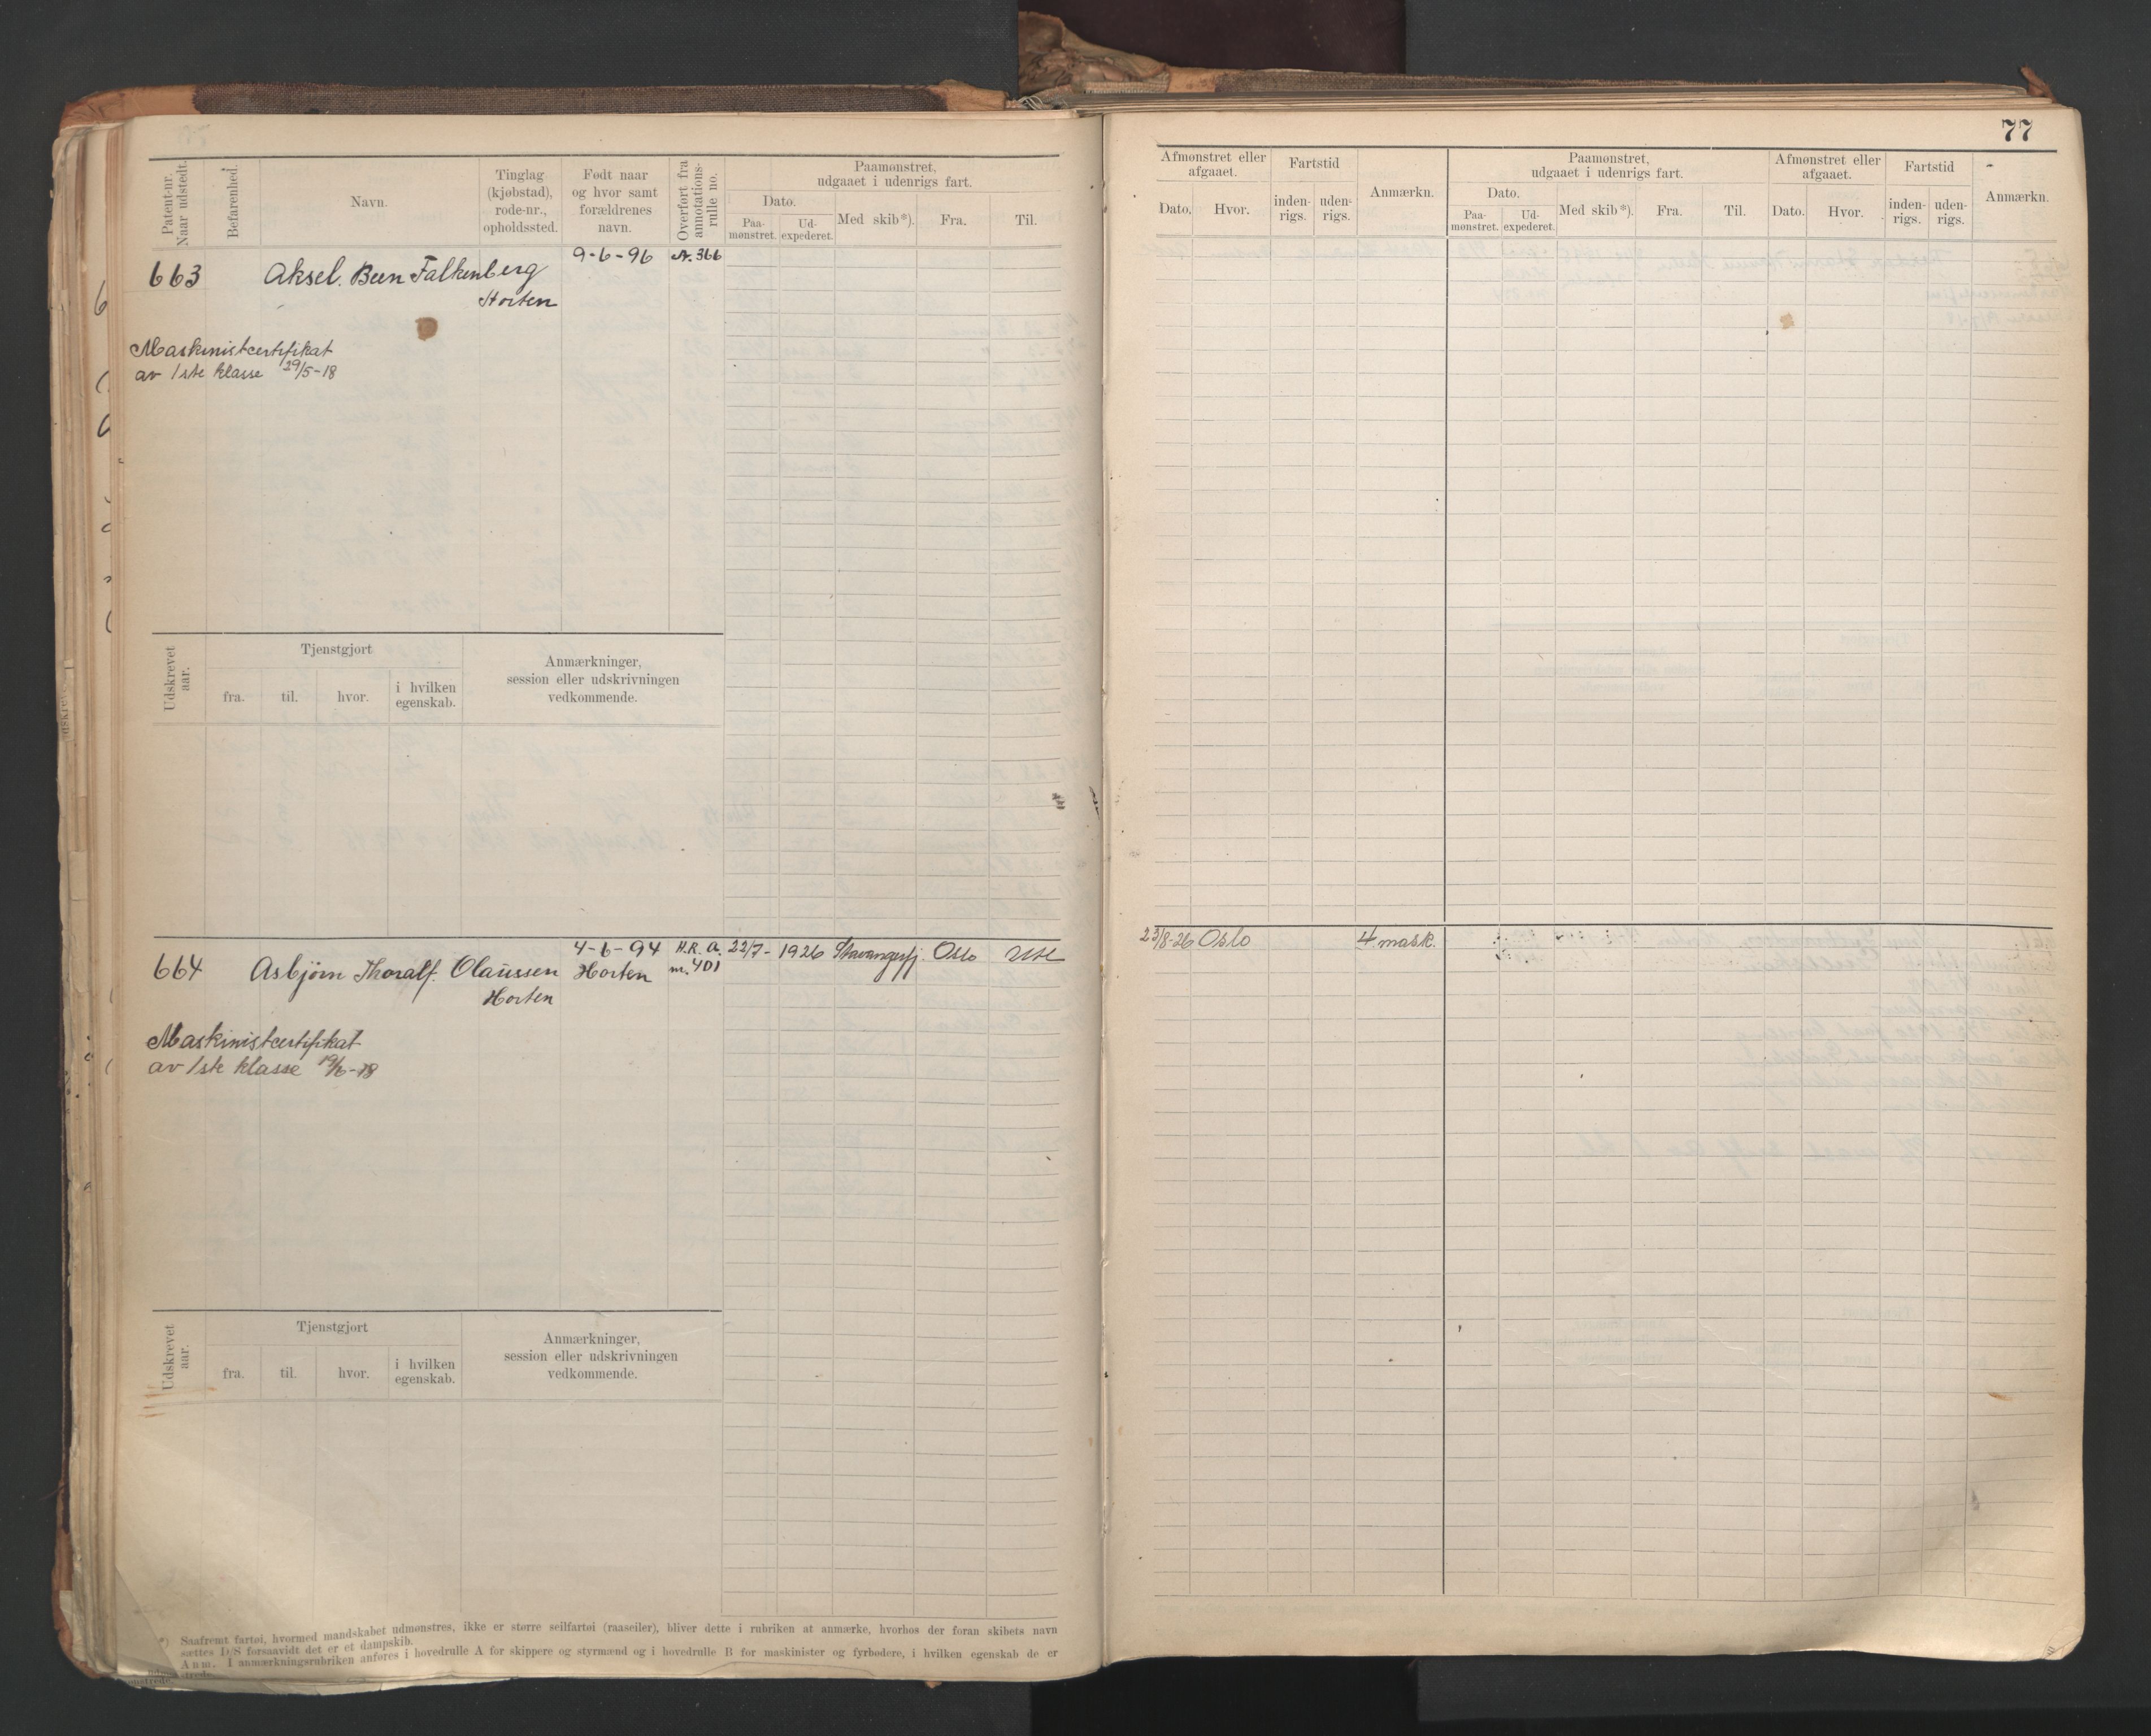 77
Patent-nr. Naar udstedt.
Befarenhed.
Navn.
Tinglag (kjøbstad), rode-nr., opholdssted.
Født naar og hvor samt forældrenes navn.
Overført fra annotations-rulle no.
Paamønstret, udgaaet i udenrigs fart.
Dato.
Paa-mønstret.
Ud-expederet.
Med skib*).
Fra.
Til.
Afmønstret eller afgaaet.
Dato.
Hvor.
Fartstid
inden-rigs.
uden-rigs.
Anmærkn.
Paamønstret, udgaaet i udenrigs fart.
Dato.
Paa-mønstret.
Ud-expederet.
Med skib*).
Fra.
Til.
Afmønstret eller afgaaet.
Dato.
Hvor.
Fartstid
inden-rigs.
uden-rigs.
Anmærkn.
9-6-96 A. 366
663 Aksel. Been Falkenberg
Horten
Maskinistcertifikat
av 1ste klasse 29/5-18
Udskrevet aar.
Tjenstgjort
fra.
til.
hvor.
i hvilken egenskab.
Anmærkninger,
session eller udskrivningen
vedkommende.
4-6-94 H.R. A. 22/7- 1926 Stavangerfj. Oslo 23/8-26 Oslo 4 mask.
664 Asbjørn Thoralf. Olaussen Horten 401
Horten
Maskinistcertifikat
av 1ste klasse 19/6-18
Udskrevet aar.
Tjenstgjort
fra.
til.
hvor.
i hvilken egenskab.
Anmærkninger,
session eller udskrivningen
vedkommende.
*) Saafremt fartøi, hvormed mandskabet udmønstres, ikke er større seilfartøi (raaseiler), bliver dette i rubriken at anmærke, hvorhos der foran skibets navn
sættes D/S forsaavidt det er et dampskib.
Anm. I anmærkningsrubriken anføres i hovedrulle A for skippere og styrmænd og i hovedrulle B for maskinister og fyrbødere, i hvilken egenskab de er